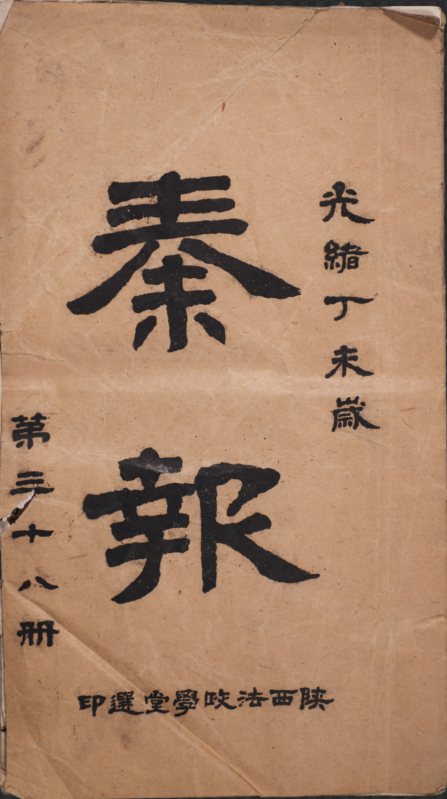 光緒丁未歲
秦報
第三十八册
陝西法政學堂選印